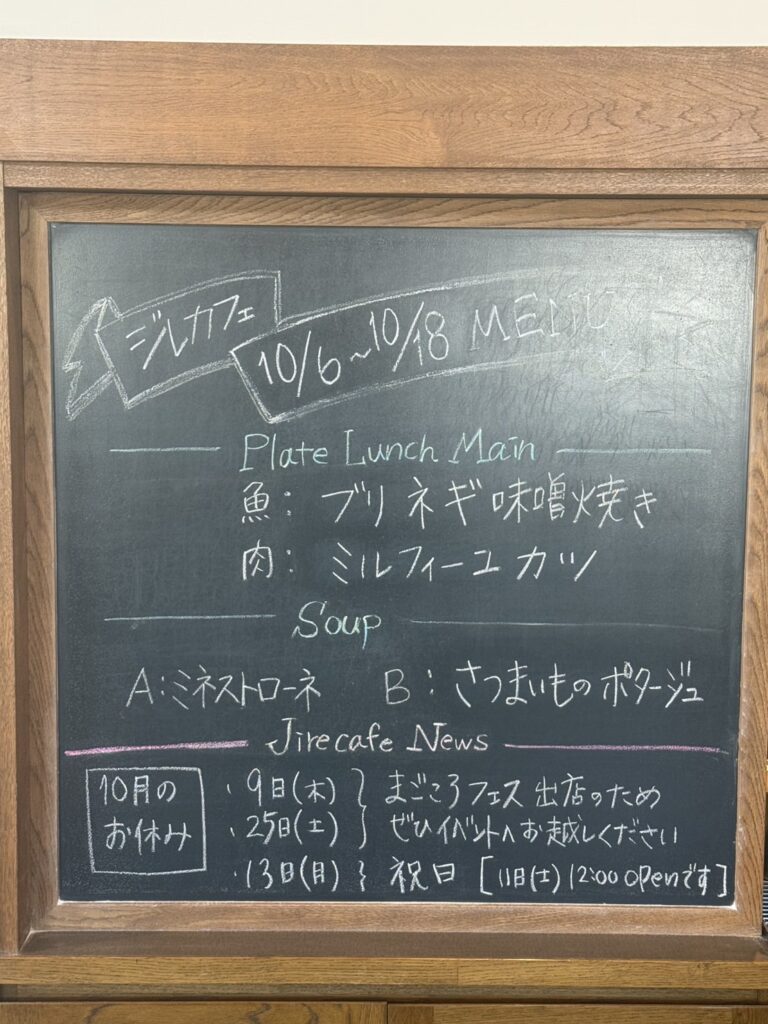 ジルカフェ 10/6~10/18 MENU
Plate Lunch Main
魚: ブリネギ味噌焼き
肉: ミルフィーユカツ
Soup
A:ミネストローネ B:さつまいものポタージュ
Jirecafe News
10月のお休み
・9日(木) } まごころフェス出店のため
・25日(土) } ぜひイベントへお越しください
・13日(月) } 祝日 [11日(土)12:00 openです]